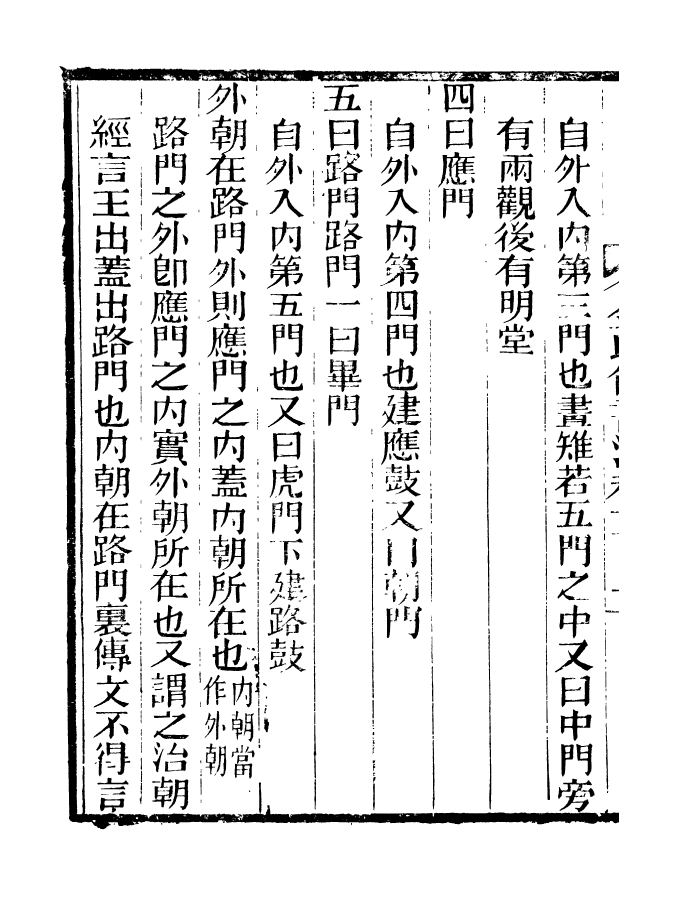 自外入內第三門也畫雉若五門之中又曰中門旁
有兩觀後有明堂
四曰應門
自外入內第四門也建應鼓又曰朝門
五曰路門路門一曰畢門
自外入內第五門也又曰虎門下建路鼓
外朝在路門外則應門之內蓋內朝所在也內朝當作外朝
路門之外卽應門之內實外朝所在也又謂之治朝
經言王出蓋出路門也內朝在路門裏傳文不得言